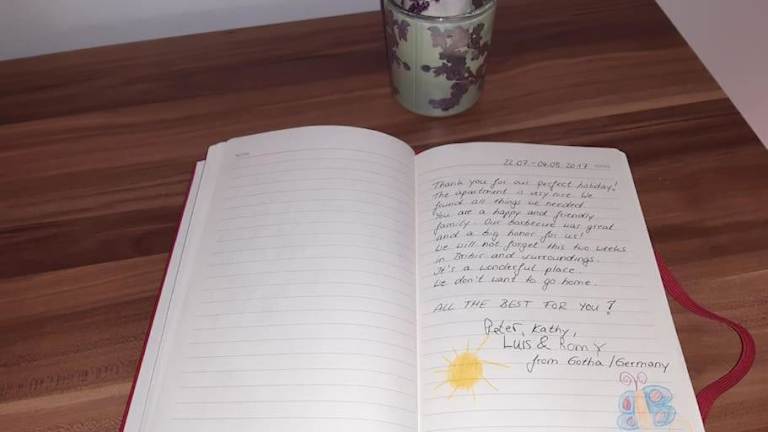 22.07.-04.08.2017
Thank you for our perfect holiday!
The apartment is very nice. We
found all things we needed.
You are a happy and friendly
family. Our barbecue was great
and a big honor for us!
We will not forget this two weeks
in Bribir and surroundings.
It's a wonderful place.
We don't want to go home.
ALL THE BEST FOR YOU!
Peter, Kathy,
Luis & Romy
from Gotha/Germany